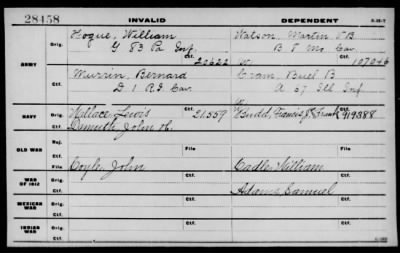 28458 INVALID DEPENDENT 3-25-7
Hogue, William Watson, Martin V B
Orig. G 83 Pa Inf. B 8 Mo Cav.
Ctf. 20622 W. 107046
ARMY
Murrin, Bernard Cram, Buel B
Orig. D 1 R.I. Cav. A 57 Ill Inf
Ctf.
NAVY Orig. Wallace, Lewis 21,559 Budd, Francis J. Frank 919388
Ctf. Demuth, John H.
OLD WAR Maj.
Ctf. File File
WAR OF 1812 Orig. Coyle, John Cadle, William
Ctf. Adams Samuel
MEXICAN WAR Orig.
Ctf.
INDIAN WAR Orig.
Ctf.